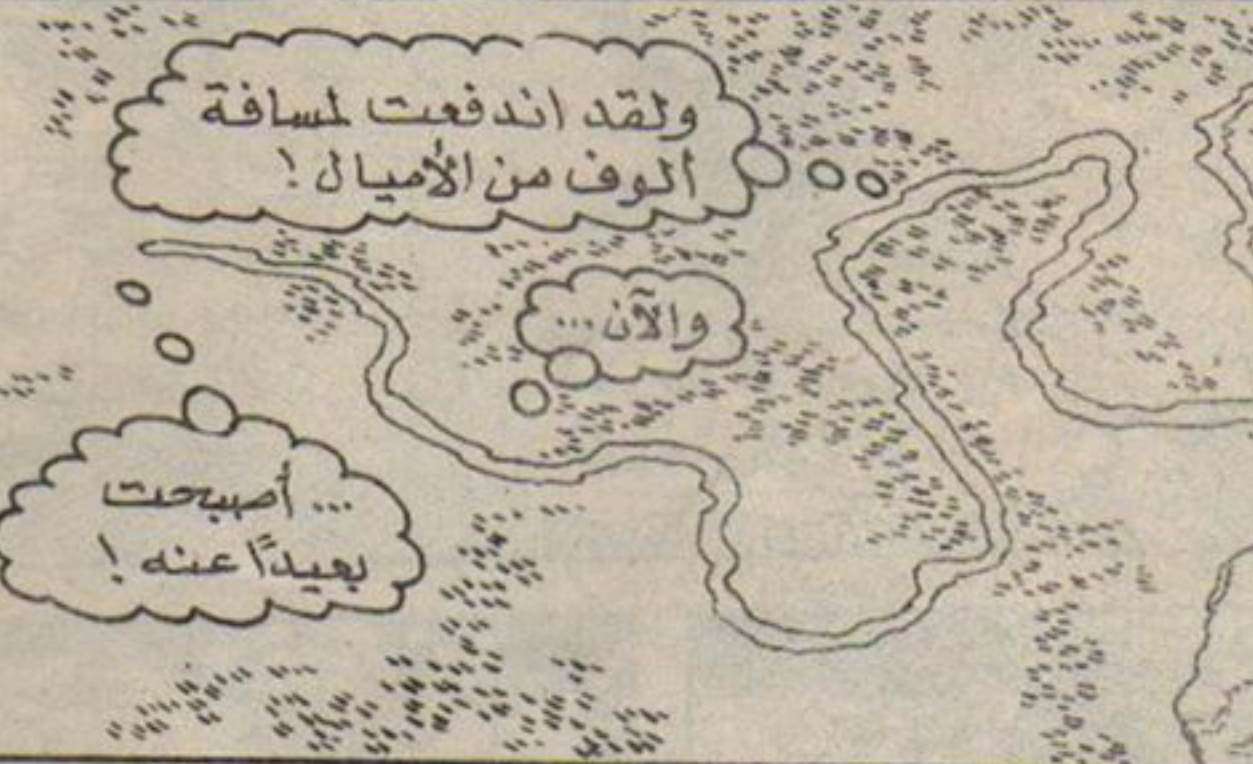 ولقد اندفعت لمسافة
ألوف من الأميال !
والآن ...
... أصبحت
بعيدًا عنه !